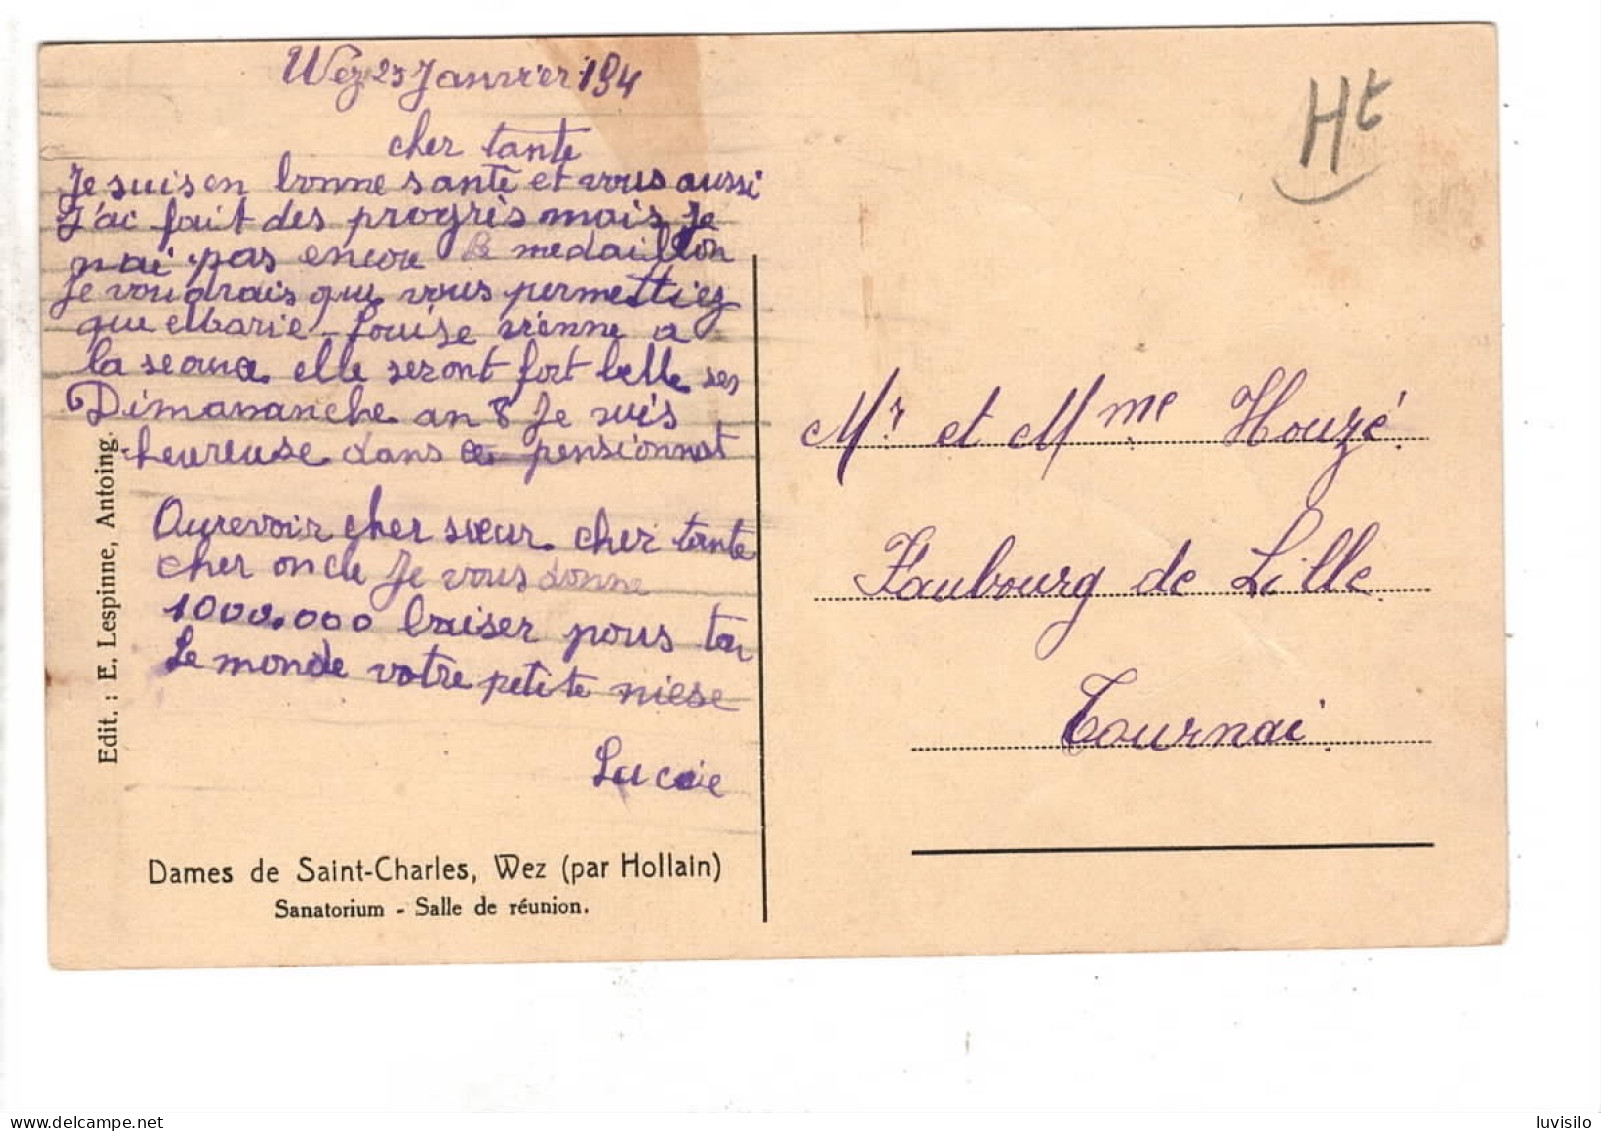 Wez 25 Janvier 194
cher tante
Je suis en bonne santé et vous aussi
J'ai fait des progrès mais je
nai pas encore le medaillon
Je voudrais que vous permettiez
que Marie-Louise vienne a
la seance elle seront fort belle ses
Dimananche an 8 Je suis
heureuse dans ce pensionnat
Aurevoir cher sœur cher tante
cher oncle Je vous donne
1000.000 baiser pous tou
Le monde votre petite niese
Lucie
Edit. : E. Lespinne, Antoing.
Dames de Saint-Charles, Wez (par Hollain)
Sanatorium - Salle de réunion.
Ht
Mr et Mme Houzé.
Faubourg de Lille.
Tournai.
delcampe.net
luvisilo